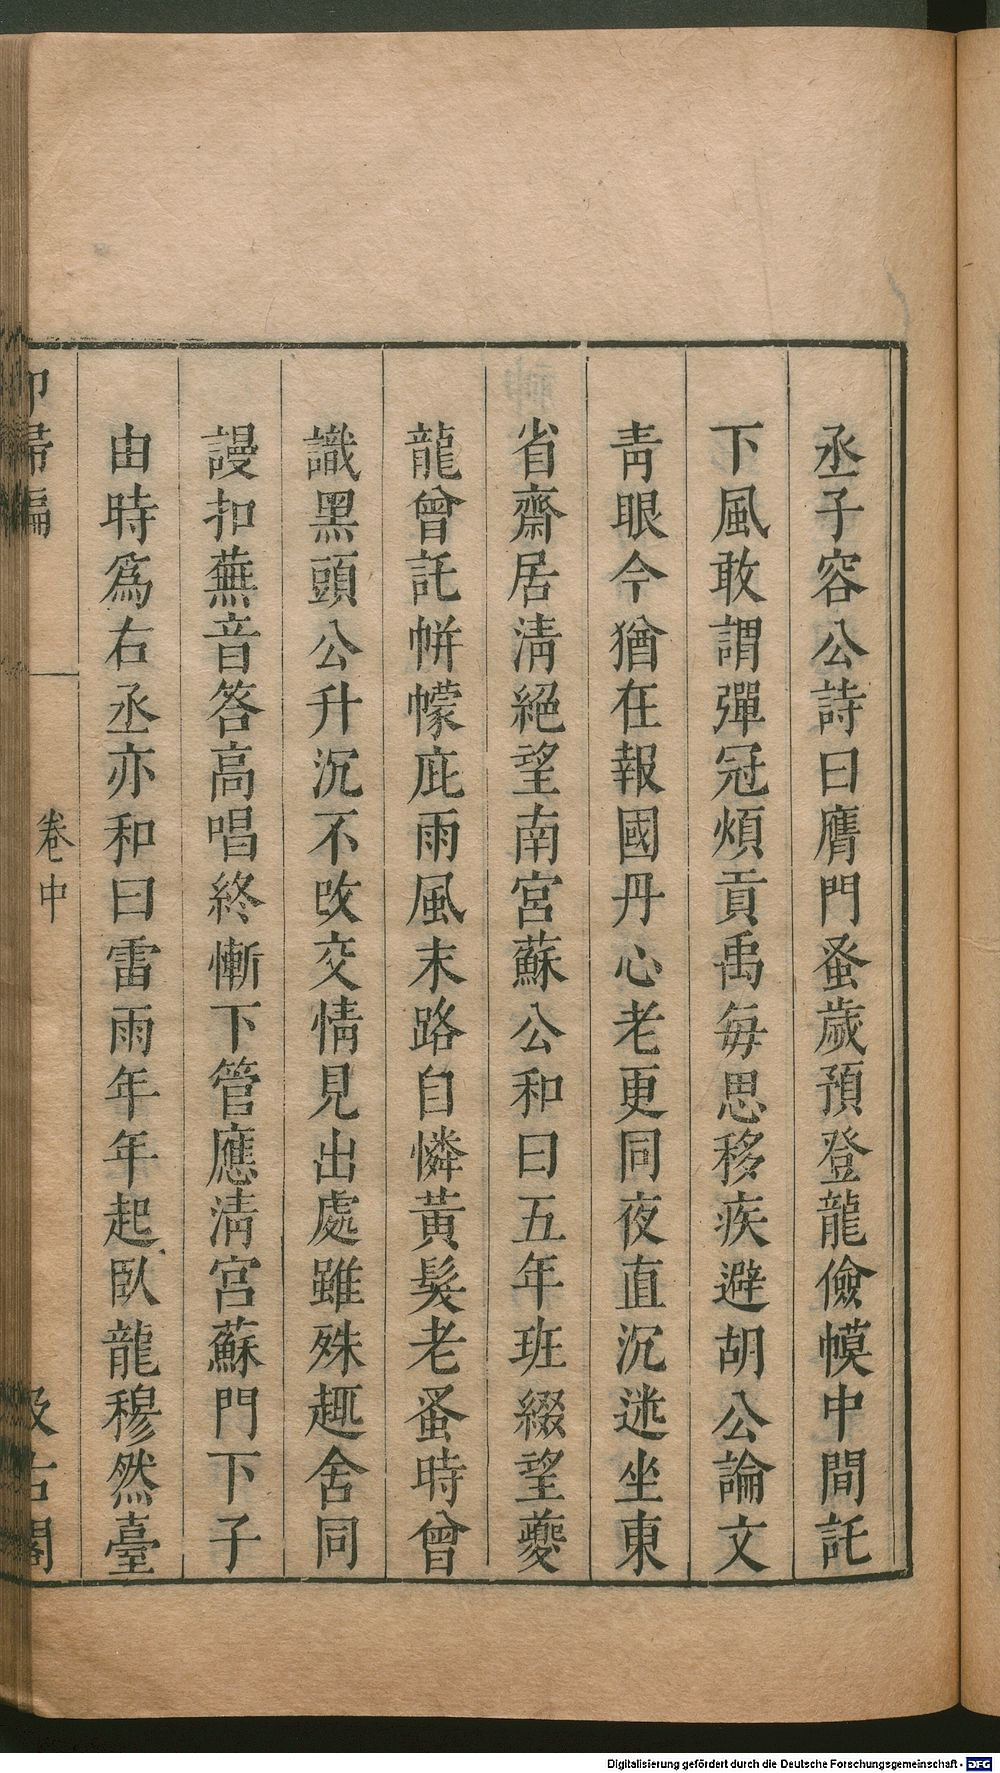 丞子容公詩曰膺門蚤歲預登龍儉幙中間託
下風敢謂彈冠煩貢禹每思移疾避胡公論文
靑眼今猶在報國丹心老更同夜直沉迷坐東
省齋居淸絕望南宮蘇公和曰五年班綴望夔
龍曾託帡幪庇雨風末路自憐黃髮老蚤時曾
識黑頭公升沉不改交情見出處雖殊趣舍同
謾扣蕪音答高唱終慚下管應淸宮蘇門下子
由時爲右丞亦和曰雷雨年年起臥龍穆然臺
卷中
Digitalisierung gefördert durch die Deutsche Forschungsgemeinschaft - DFG